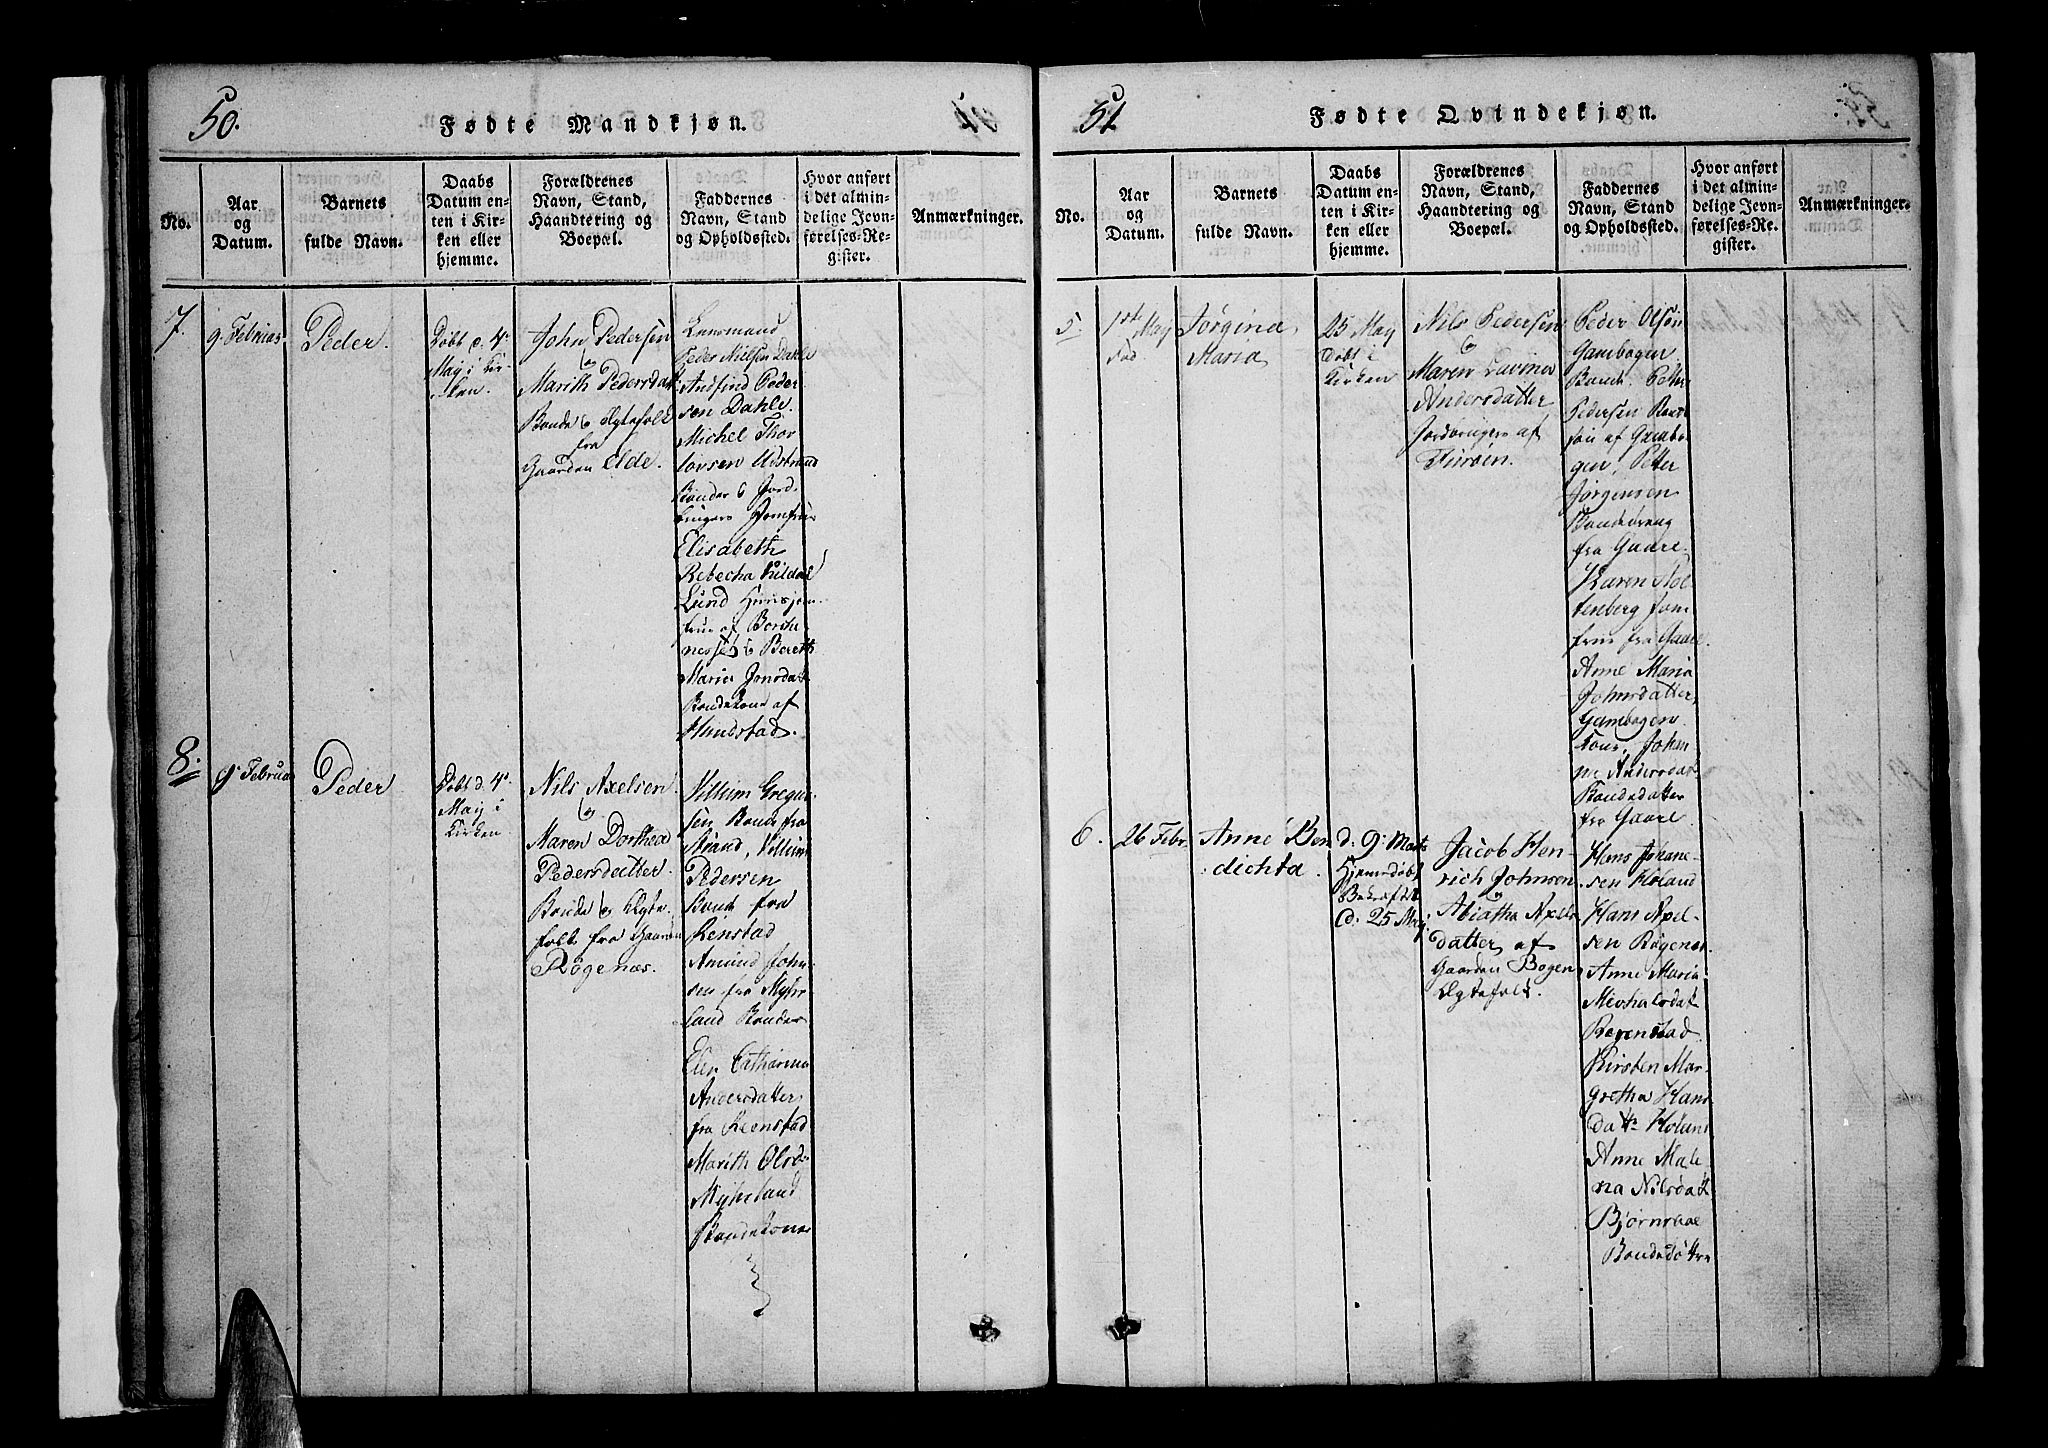 50.
Fødte Mandkjøn.
No.
Aar
og
Datum.
Barnets
fulde Navn.
Daabs
Datum en-
ten i Kir-
ken eller
hjemme.
Forældrenes
Navn, Stand,
Haandtering og
Boepæl.
Faddernes
Navn, Stand
og Opholdssted.
Hvor anført
i det almin-
delige Jevn-
førelses-Re-
gister.
Anmærkninger.
7.
9. Februar
Peder.
Døbt d. 4de
May i Kir-
ken.
John Pedersen
og
Marith Pedersdatt
Bonde og Ægtefolk
fra
Gaarden Elde.
Lensmand
Peder Nielsen Dahle
Andfind Peder
sen Dahle.
Michel Thor
Bønder og Jord-
brugere Jomfrue
Elisabeth
Rebecha Hildal
Lund
frue af
Bereth
Maria Jonsdatt
Bondekone af
Hundstad.
8.
9. Februar
Peder
Døbt d. 4de
May i
Kirken
Nils Axelsen
og
Maren Dorthea
Pedersdatter.
Bonde og Ægte
folk fra Gaarden
Røgenæs.
Villum Gregus
sen Bonde fra
Strand, Villum
Pedersen
Bonde fra
Renstad
Amund John-
sen fra Myhre
land Bønder
Elen Catharina
Andersdatter
fra Reenstad
Marith Olsd:
Myhreland
Bondekoner
51
Fødte Qvindekjøn.
No.
Aar
og
Datum.
Barnets
fulde Navn.
Daabs
Datum en-
ten i Kir-
ken eller
hjemme.
Forældrenes
Navn, Stand,
Haandtering og
Boepæl.
Faddernes
Navn, Stand
og Opholdssted.
Hvor anført
i det almin-
delige Jevn-
førelses-Re-
gister.
Anmærkninger.
5.
1ste May
Jørgina
Maria
25 May
døbt i
Kirken
Nils Pedersen
og
Maren
Andersdatter
Jordbrugere af
Peder Olsøn
Gambogen
Bonde. Petter
Pedersen
søn af Gambo-
gen, Petter
Jørgensen
Bondedreng
fra Gaare.
Karen Hol
tenberg Jom
frue fra Gaare.
Anne Maria
Johnsdatter,
Gambogen
Kone, Johan-
ne Andersdat
Bondedatter
fra Gaare
6.
26 Febr.
Anne Ben
dichta
d. 9. Marts
Hjemmedøbt
Bekræftet
d: 25 May
Jacob Hen-
rich Johnsen
Abiatha Axels
datter af
Gaarden Bogen
Ægtefolk.
Hans Johane-
sen Høland
Hans Axel-
sen Røgenæs
Anne Maria
Michalsdat
Regenstad
Kirsten Mar-
gretha Hans
datt: Høland
Anne Male
na Nilsdatt
Bondedøttre